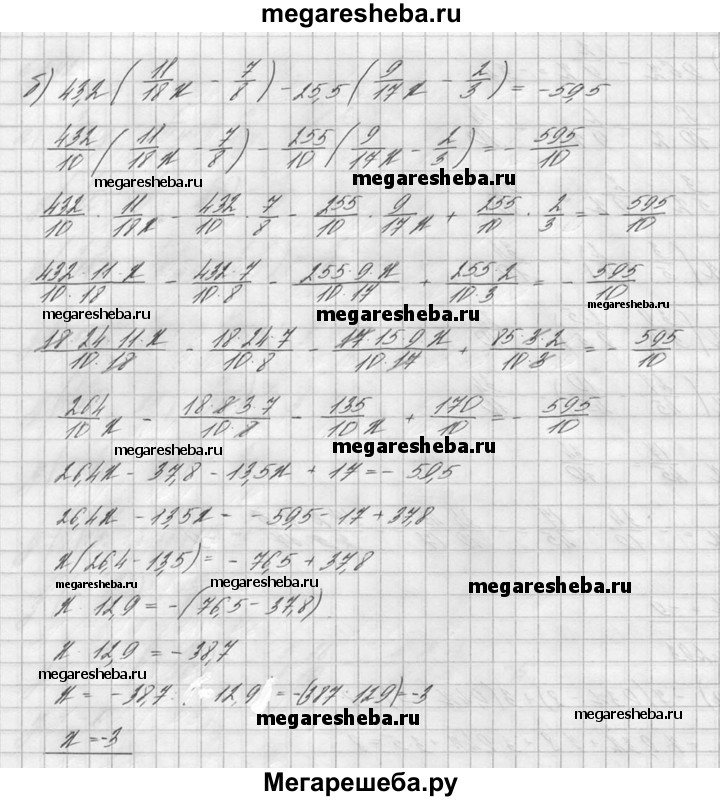 megaresheba.ru
б) 43,2 (11/18 x - 7/8) - 25,5 (9/17 x - 2/3) = -59,5
432/10 (11/18 x - 7/8) - 255/10 (9/17 x - 2/3) = - 595/10
megaresheba.ru megaresheba.ru
432/10 · 11/18 x - 432/10 · 7/8 - 255/10 · 9/17 x + 255/10 · 2/3 = - 595/10
432·11·x/10·18 - 432·7/10·8 - 255·9·x/10·17 + 255·2/10·3 = - 595/10
megaresheba.ru megaresheba.ru megaresheba.ru
18·24·11·x/10·18 - 18·24·7/10·8 - 17·15·9·x/10·17 + 85·3·2/10·3 = - 595/10
264/10 x - 18·8·3·7/10·8 - 135/10 x + 170/10 = - 595/10
megaresheba.ru megaresheba.ru
26,4x - 37,8 - 13,5x + 17 = - 59,5
26,4x - 13,5x = - 59,5 - 17 + 37,8
x(26,4 - 13,5) = - 76,5 + 37,8
megaresheba.ru megaresheba.ru megaresheba.ru
x · 12,9 = -(76,5 - 37,8)
x · 12,9 = - 38,7
megaresheba.ru
x = - 38,7 : 12,9 = -(387 : 129) = -3
megaresheba.ru megaresheba.ru
x = -3
Мегарешеба.ру